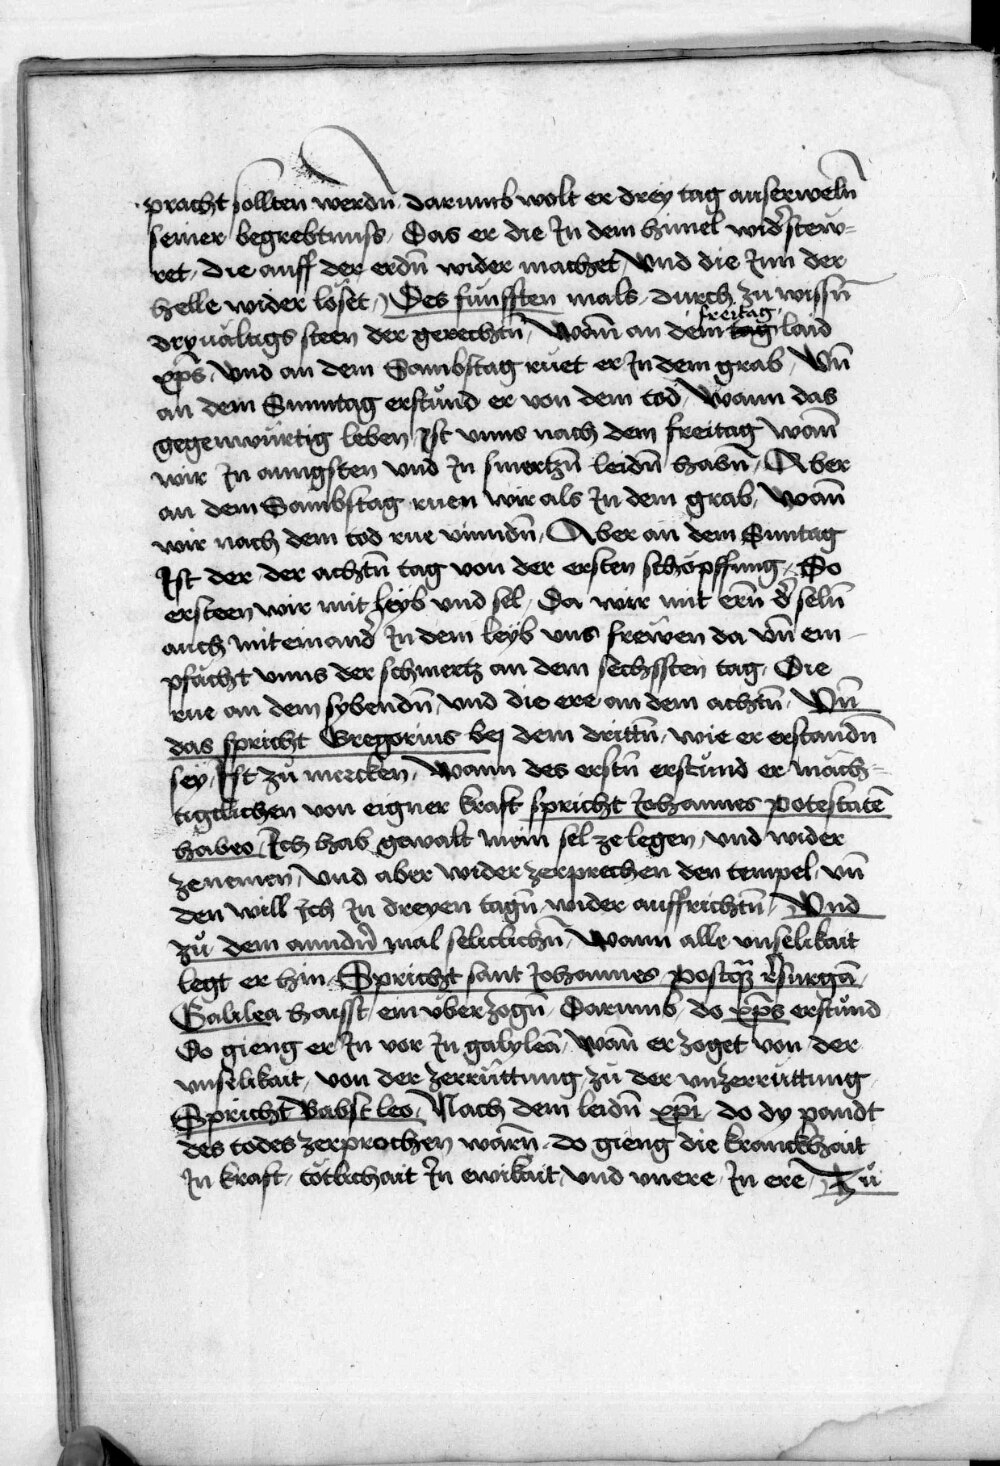 pracht sollten werdn̄ darumb wolt er drey tag auserweln̄
seiner begrebtnuss Das er die In dem himel wid̾stew-
ret, die auff der erdn̄ wider machet, Vnd die Inn der
helle wider löset, Des funfften mals, durch zu wissn̄
dryualtigs steen der gerechtn̄, Wann̄ an dem freitag laid
xp̄s, Vnd an dem Sambstag ruet er In dem grab, Vn̄
an dem Sunntag erstůnd er von dem tod, Wann das
gegenwürtig leben Ist vnns nach dem freitag wann̄
wir In anngsten vnd In smertzn̄ leidn̄ habn̄, Aber
an dem Sambstag ruen wir als In dem grab, wann̄
wir nach dem tod rue vinndn̄, Aber an dem Suntag
Ist der der achtn̄ tag von der ersten schöpffung, Do
ersteen wir mit leyb vnd sel, Da wir mit ern̄ d̾ seln̄
auch miteinand̾ In dem leyb vns frewen da vn̄ em-
pfächt vnns der schmertz an dem sechssten tag, Die
rue an dem sybendn̄, vnd die ere an dem achtn̄, Vn̄
das spricht Gregorius bej dem drittn̄, wie er erstandn̄
sey, Ist zů mercken, Wann des erstn̄ erstůnd er mäch-
tigclichen von eigner kraft spricht Johannes potestatē
habeo, Ich hab gewalt mein sel ze legen, vnd wider
ze nemen̄, Vnd aber wider zerprechen den tempel, vn̄
den will Ich In dreyen tagn̄ wider auffrichtn̄, Vnd
zů dem anndn̄ mal seliclichn̄, Wann alle vnselikait
legt er hin, Spricht sant Johannes, postq̄ resurgā,
Galilea haisst ein vberzogn̄, Darumb do xp̄s erstůnd
Do gieng er In vor In galyleā, wann̄ er zoget von der
vnselikait, von der zerrüttung, zů der vnzerrüttung,
Spricht Babst leo, Nach dem leidn̄ xp̄i, do dy pandt
des todes zerprochen warn̄, do gieng die kranckhait
In kraft, tötlichait In ewikait, vnd vnere, In ere, Zů